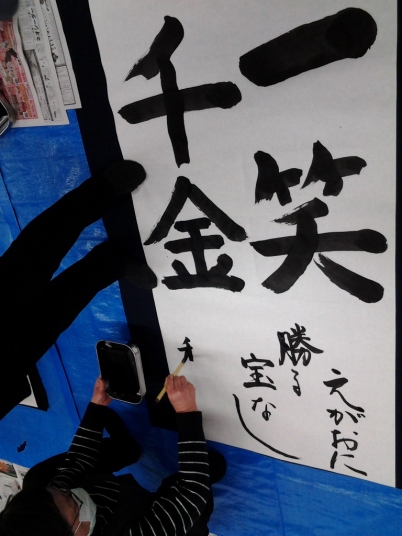 一笑
千金
えがおに
勝る
宝なし